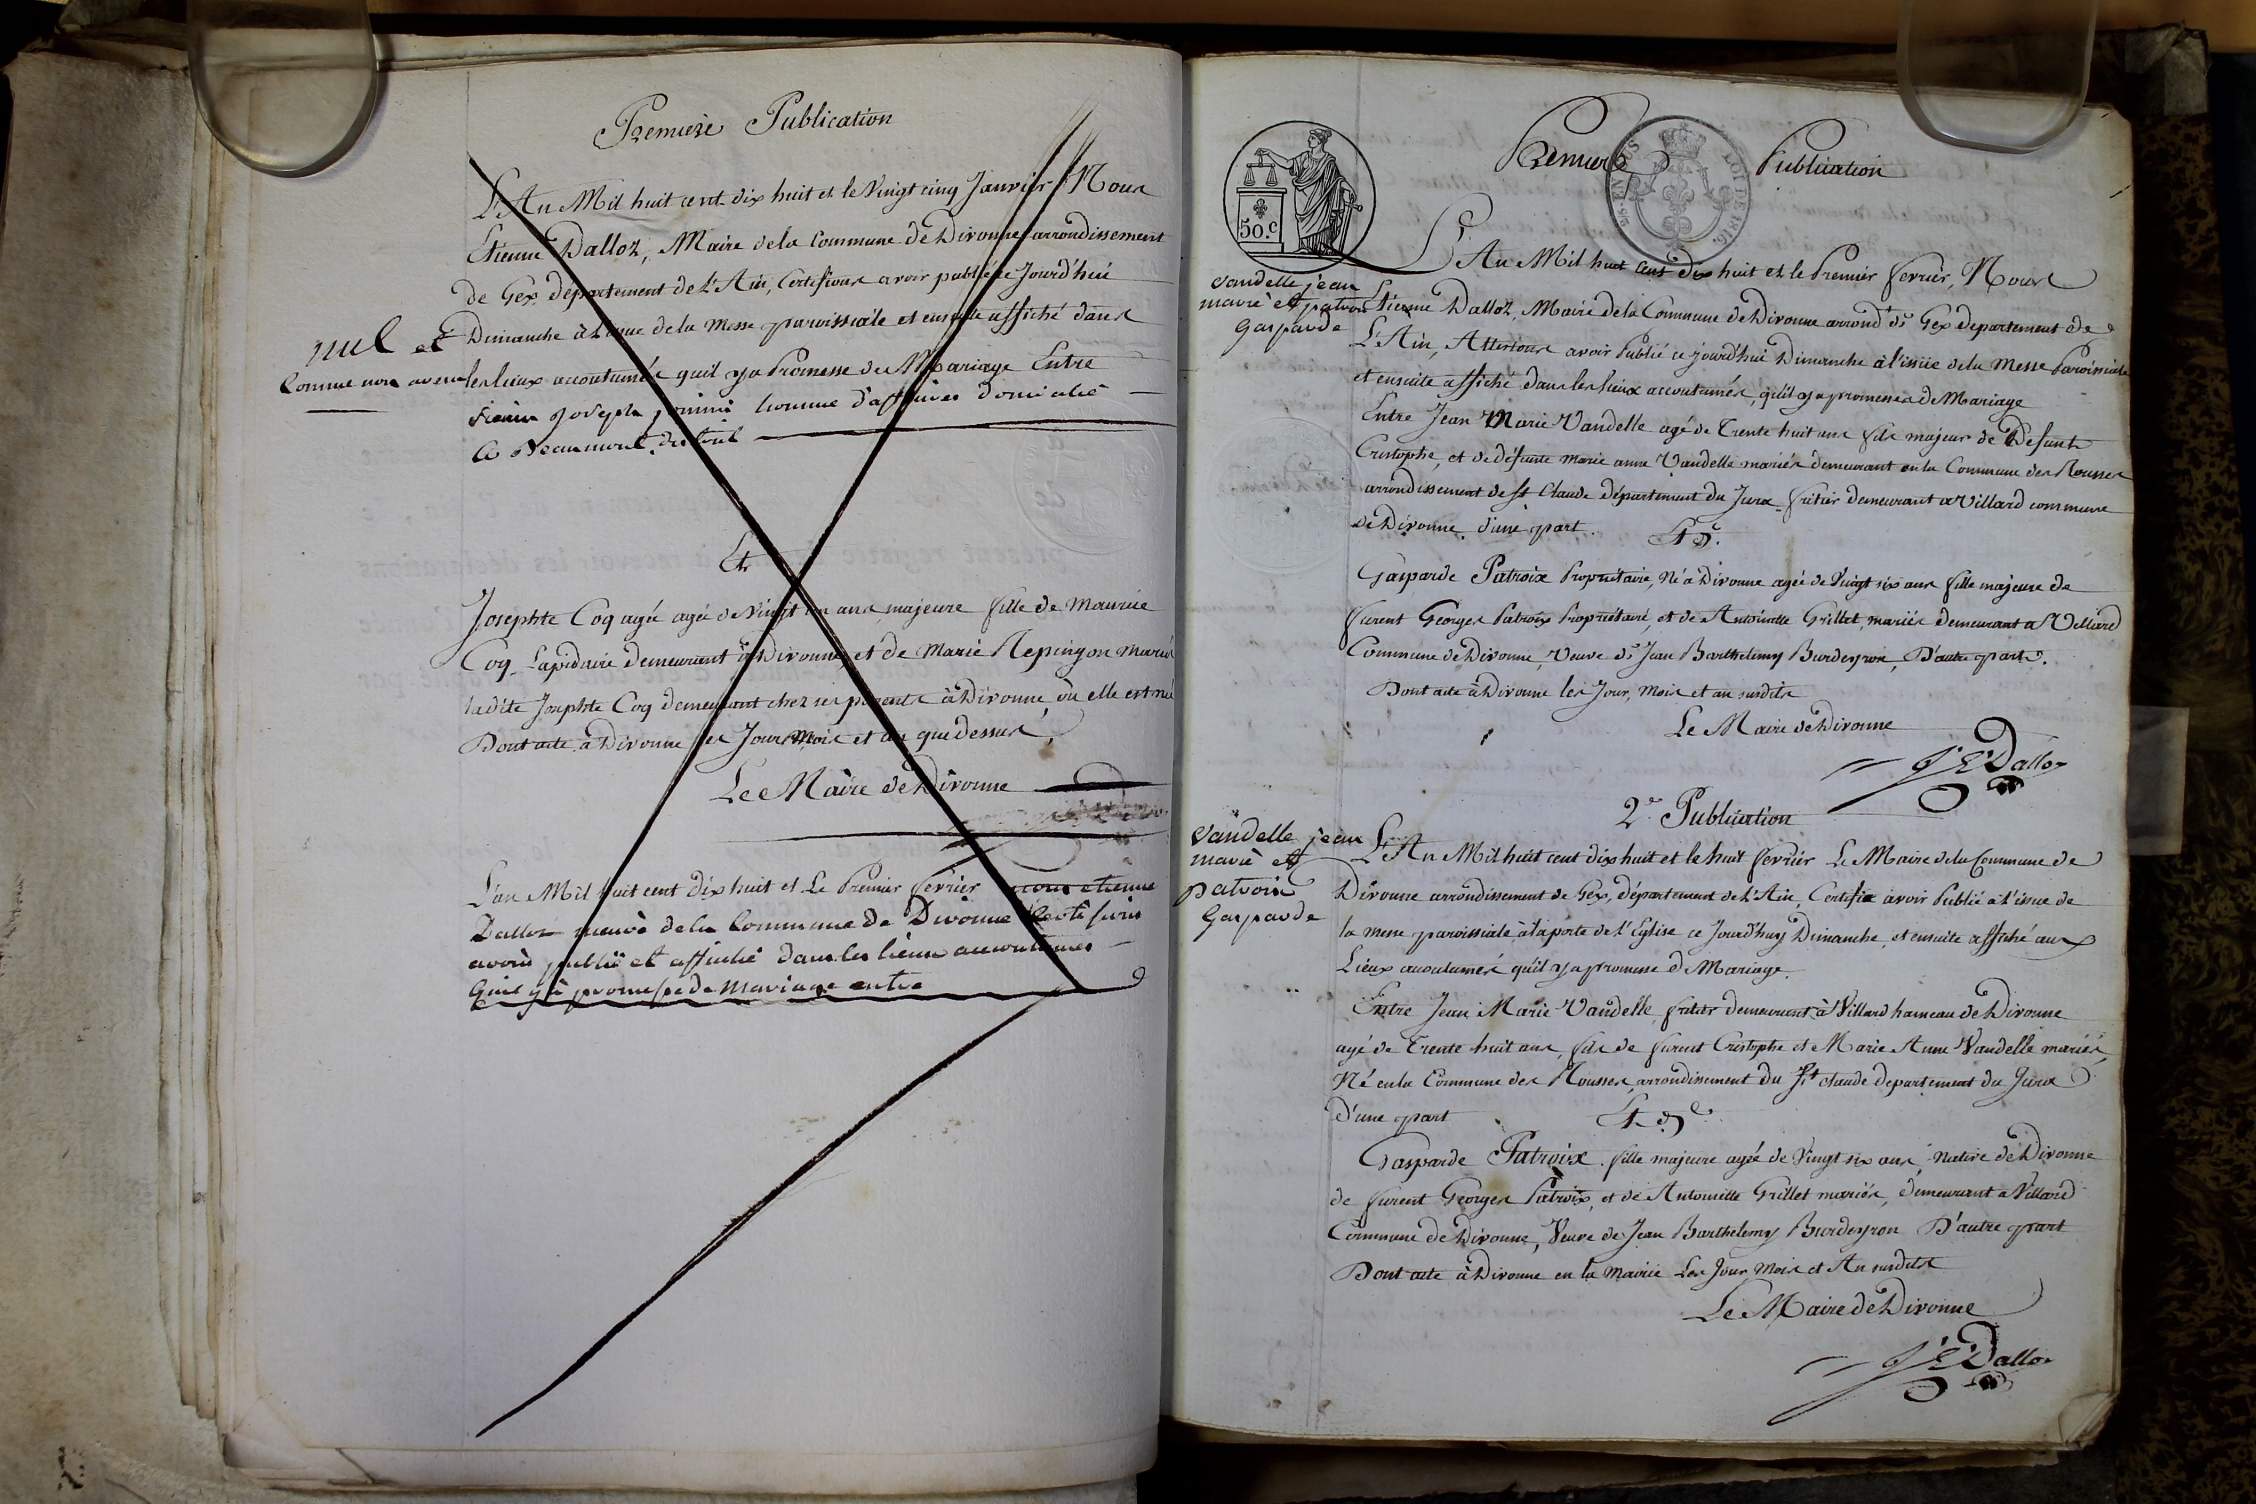 Premiere Publication
L'An Mil huit cent dix huit et le Vingt cinq Janvier Nous
Etienne Dalloz, Maire de la Commune de Divonne arrondissement
de Gex département de l'Ain, Certifions avoir publié ce Jourd'hui
Dimanche à l'issue de la Messe paroissiale et ensuite affiché dans
les lieux accoutumés qu'il y a Promesse de Mariage Entre
nul et
Comme non avenu
joseph homme d'affaires domicilié
a Beaumont
Et
Josephte Coq agée agée de Vingt un ans majeure fille de Maurice
Coq Lapidaire demeurant à Divonne et de Marie Repingon Mariés
ladite Josephte Coq demeurant chez ses parents à Divonne, où elle est né
Dont acte à Divonne les Jour Mois et an que dessus,
Le Maire de Divonne
L'an Mil huit cent dix huit et Le Premier fevrier nous etienne
Dalloz maire de la Commune de Divonne Certifions
avoir publié et affiché dans les lieux accoutumes
Quil y à promesse de Mariage entre
Premiere Publication
50.C
LOUIS 1816.
Vandelle jean
marie et patroix
Gasparde
L'An Mil huit cent dix huit et le Premier fevrier, Nous
Etienne Dalloz, Maire de la Commune de Divonne arrond.t de Gex departement de
L'Ain, Attestons avoir Publié ce jourd'hui Dimanche à l'issue de la Messe Paroissiale
et ensuite affiché dans les lieux accoutumés, qu'il y a promesse de Mariage
Entre Jean Marie Vandelle agé de Trente huit ans fils majeur de Defunt
Cristophe, et de défunte Marie anne Vandelle mariés demeurant en la Commune des Rousses
arrondissement de St Claude département du Jura fritier demeurant a Villard commune
de Divonne d'une part.
Et
Gasparde Patroix Propriétaire, Né à Divonne agée de Vingt six ans fille majeure de
furent Georges Patroix Propriétaire, et de Antoinette Grillet, mariés demeurant a Villard
Commune de Divonne, Veuve de Jean Barthelemy Burdeyron, D'autre part.
Dont acte à Divonne les Jour, Mois et an susdits
Le Maire de Divonne
Dalloz
2e Publication
Vandelle jean
marie et
patroix
Gasparde
L'An Mil huit cent dix huit et le huit fevrier Le Maire de la Commune de
Divonne arrondissement de Gex, département de l'Ain, Certifie avoir Publié à l'issue de
la messe paroissiale, à la porte de l'Eglise ce Jourd'huy Dimanche, et ensuite affiché aux
Lieux accoutumés qu'il y a promesse de Mariage.
Entre Jean Marie Vandelle fritier demeurant à Villard hameau de Divonne
agé de Trente huit ans, fils de furent Cristophe et Marie Anne Vandelle mariés,
Né en la Commune des Rousses, arrondissement du St claude departement du Jura
D'une part
Et
Gasparde Patroix fille majeure agée de Vingt six ans, native de Divonne
de furent Georges Patroix, et de Antoinette Grillet mariés, demeurant a Villard
Commune de Divonne, Veuve de Jean Barthelemy Burdeyron D'autre part
Dont acte à Divonne en la Mairie Les Jour Mois et An susdits
Le Maire de Divonne
Dalloz